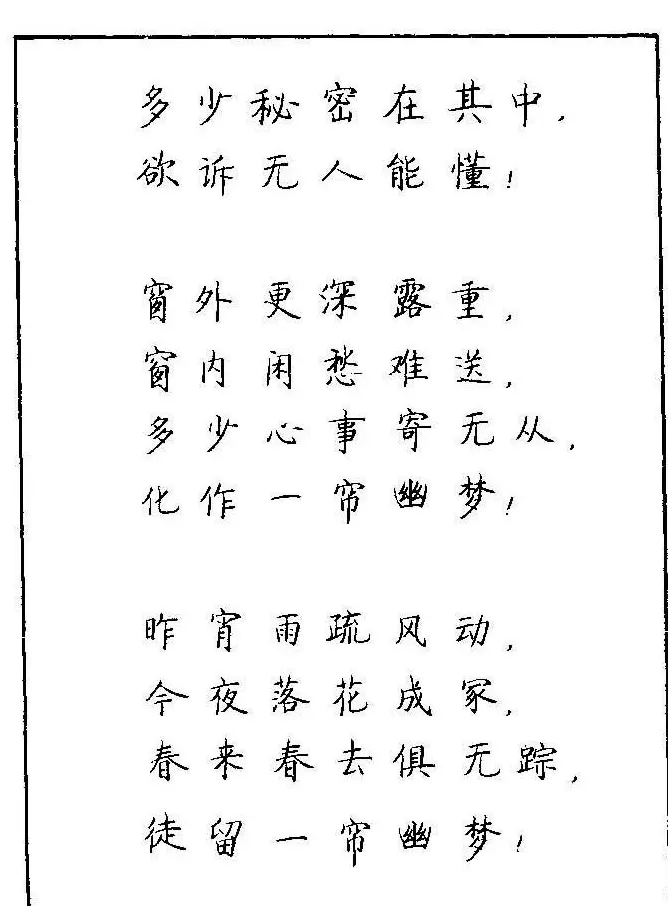 多少秘密在其中，
欲诉无人能懂！
窗外更深露重，
窗内闲愁难送，
多少心事寄无从，
化作一帘幽梦！
昨宵雨疏风动，
今夜落花成冢，
春来春去俱无踪，
徒留一帘幽梦！